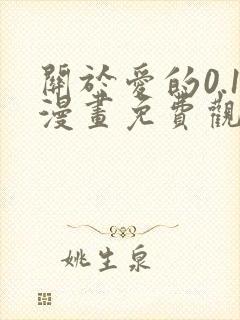 關於愛的0.1
漫畫免費觀
姚生泉